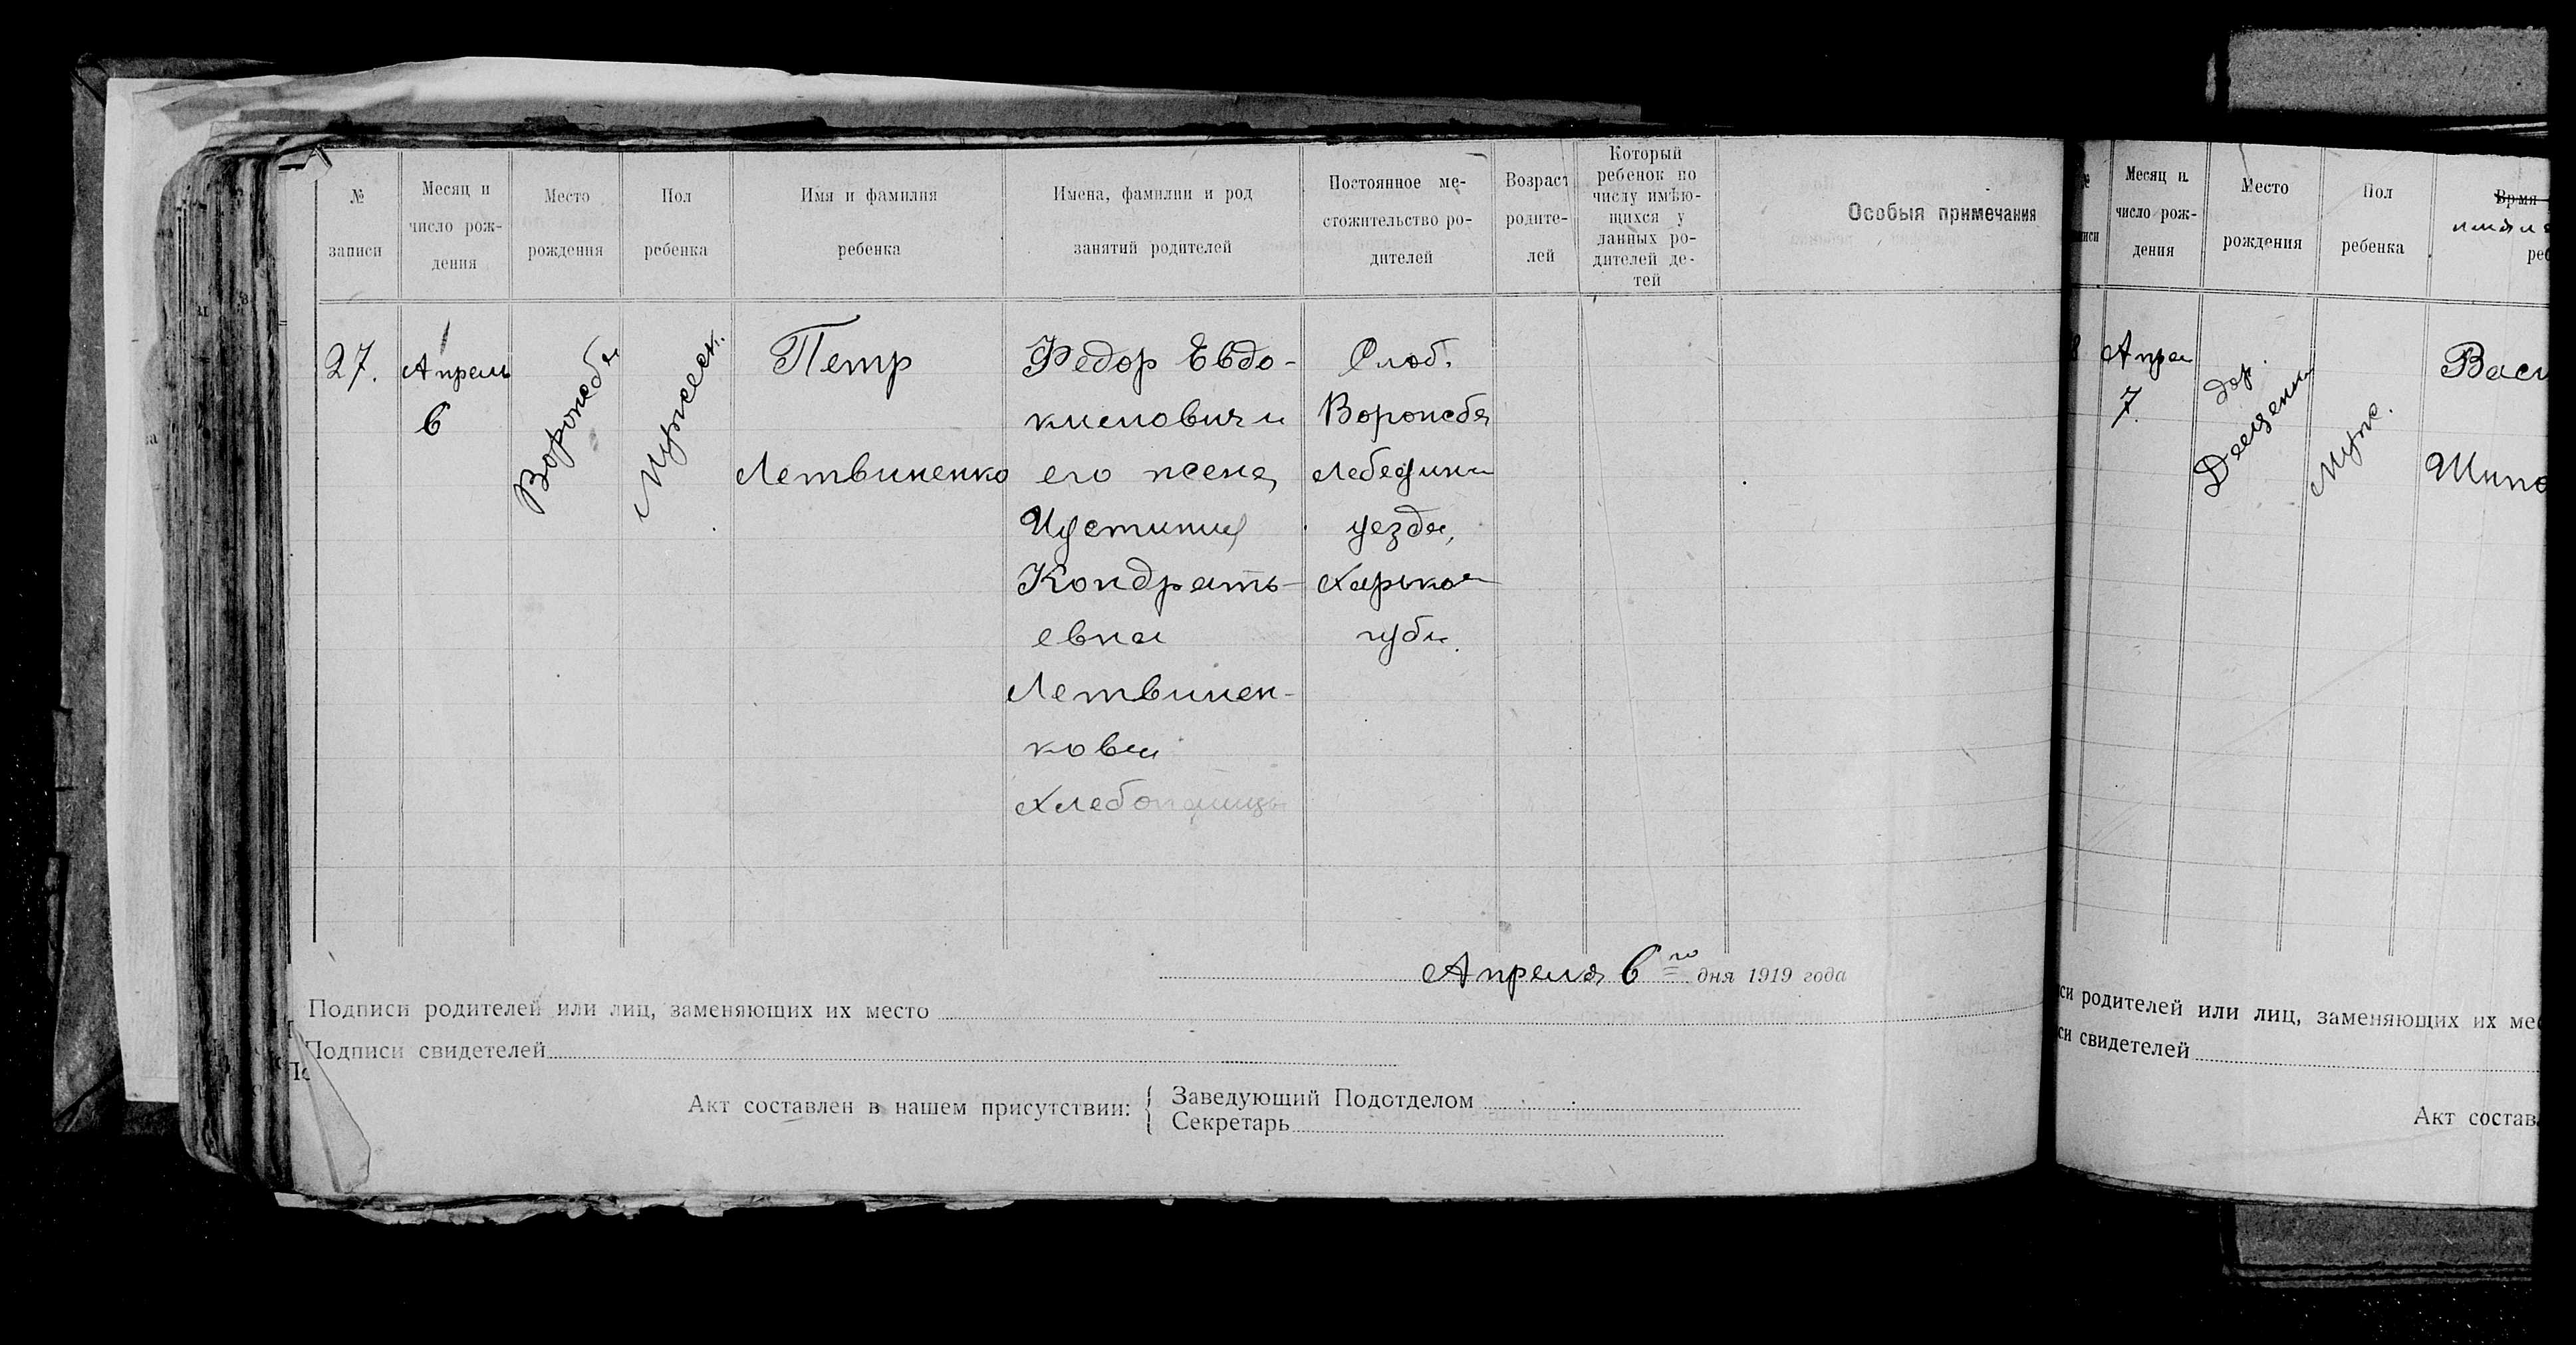 №
записи
Месяц и
число рож-
дения
Место
рождения
Пол
ребенка
Имя и фамилия
ребенка
Имена, фамилии и род
занятий родителей
Постоянное ме-
стожительство ро-
дителей
Возраст
родите-
лей
Который
ребенок по
числу имѣю-
щихся у
данных ро-
дителей де-
тей
Особыя примечания
27.
Апрель
6
Воронеба
Мужеск.
Петр
Летвиненко
Федор Евдо-
кимович и
его жена
Иустиния
Кондрать-
евна
Летвинен-
кова
Хлебопашцы
Слоб.
Воронеба
Лебедин
уезда,
Харьков
губ.
Апреля 6го дня 1919 года
Подписи родителей или лиц, заменяющих их место
Подписи свидетелей
Акт составлен в нашем присутствии:
Заведующий Подотделом
Секретарь
Месяц и
число рож-
дения
Место
рождения
Пол
ребенка
8
Апрел
7.
дер.
Муж.
Васи
си родителей или лиц, заменяющих их мес
си свидетелей
Акт состав